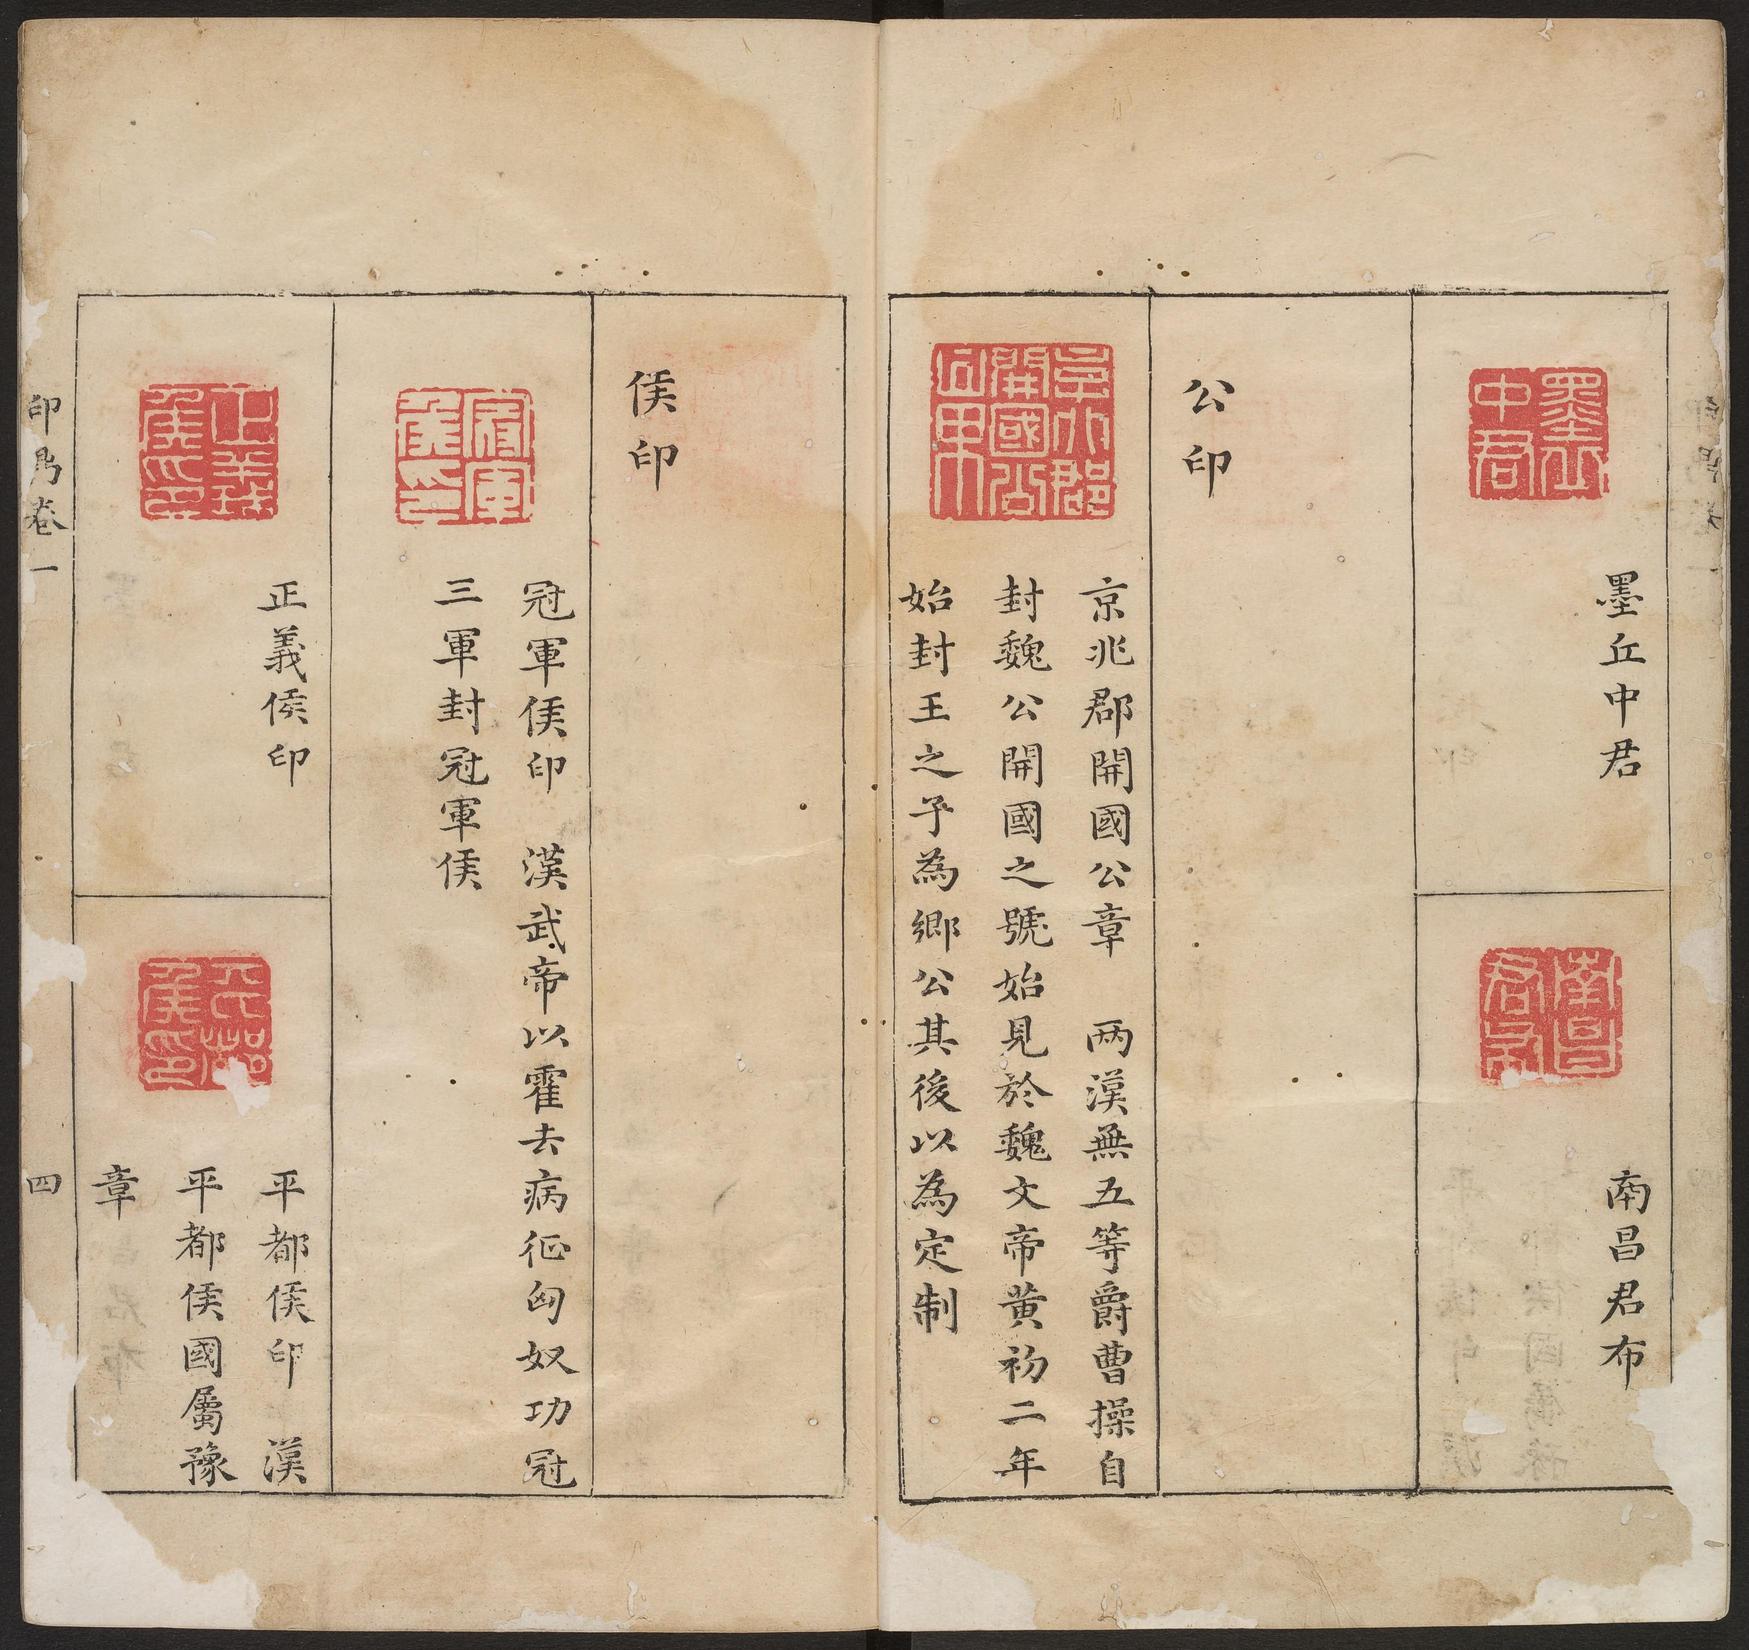 墨丘中君
南昌君布
公印
京兆郡開國公章　兩漢無五等爵曹操自
封魏公開國之號始見於魏文帝黃初二年
始封王之子為鄉公其後以為定制
侯印
冠軍侯印　漢武帝以霍去病征匈奴功冠
三軍封冠軍侯
正義侯印
平都侯印　漢
平都侯國屬豫
章
卷一
四